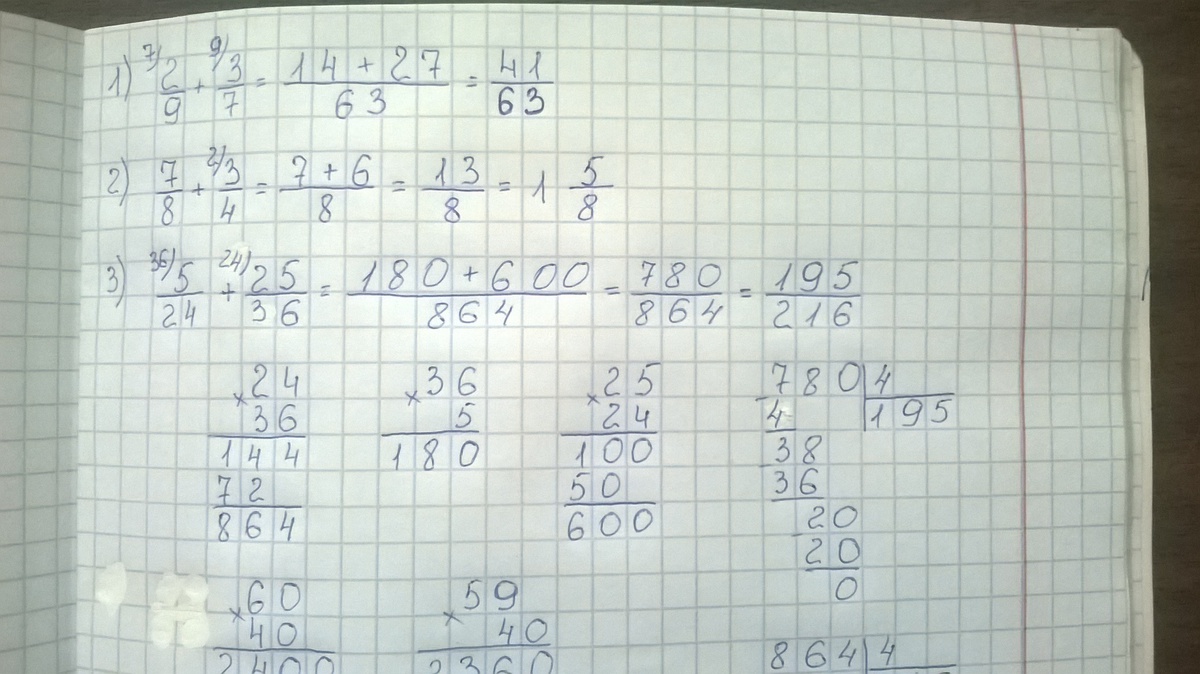 1) 7/ 2/9 + 9/ 3/7 = (14 + 27)/63 = 41/63
2) 7/8 + 2/ 3/4 = (7 + 6)/8 = 13/8 = 1 5/8
3) 36) 5/24 + 24) 25/36 = (180 + 600)/864 = 780/864 = 195/216
× 24
36
144
72
864
× 36
5
180
× 25
24
100
50
600
780 | 4
4 | 195
38
36
20
20
0
× 60
40
2400
× 59
40
2360
864 | 4